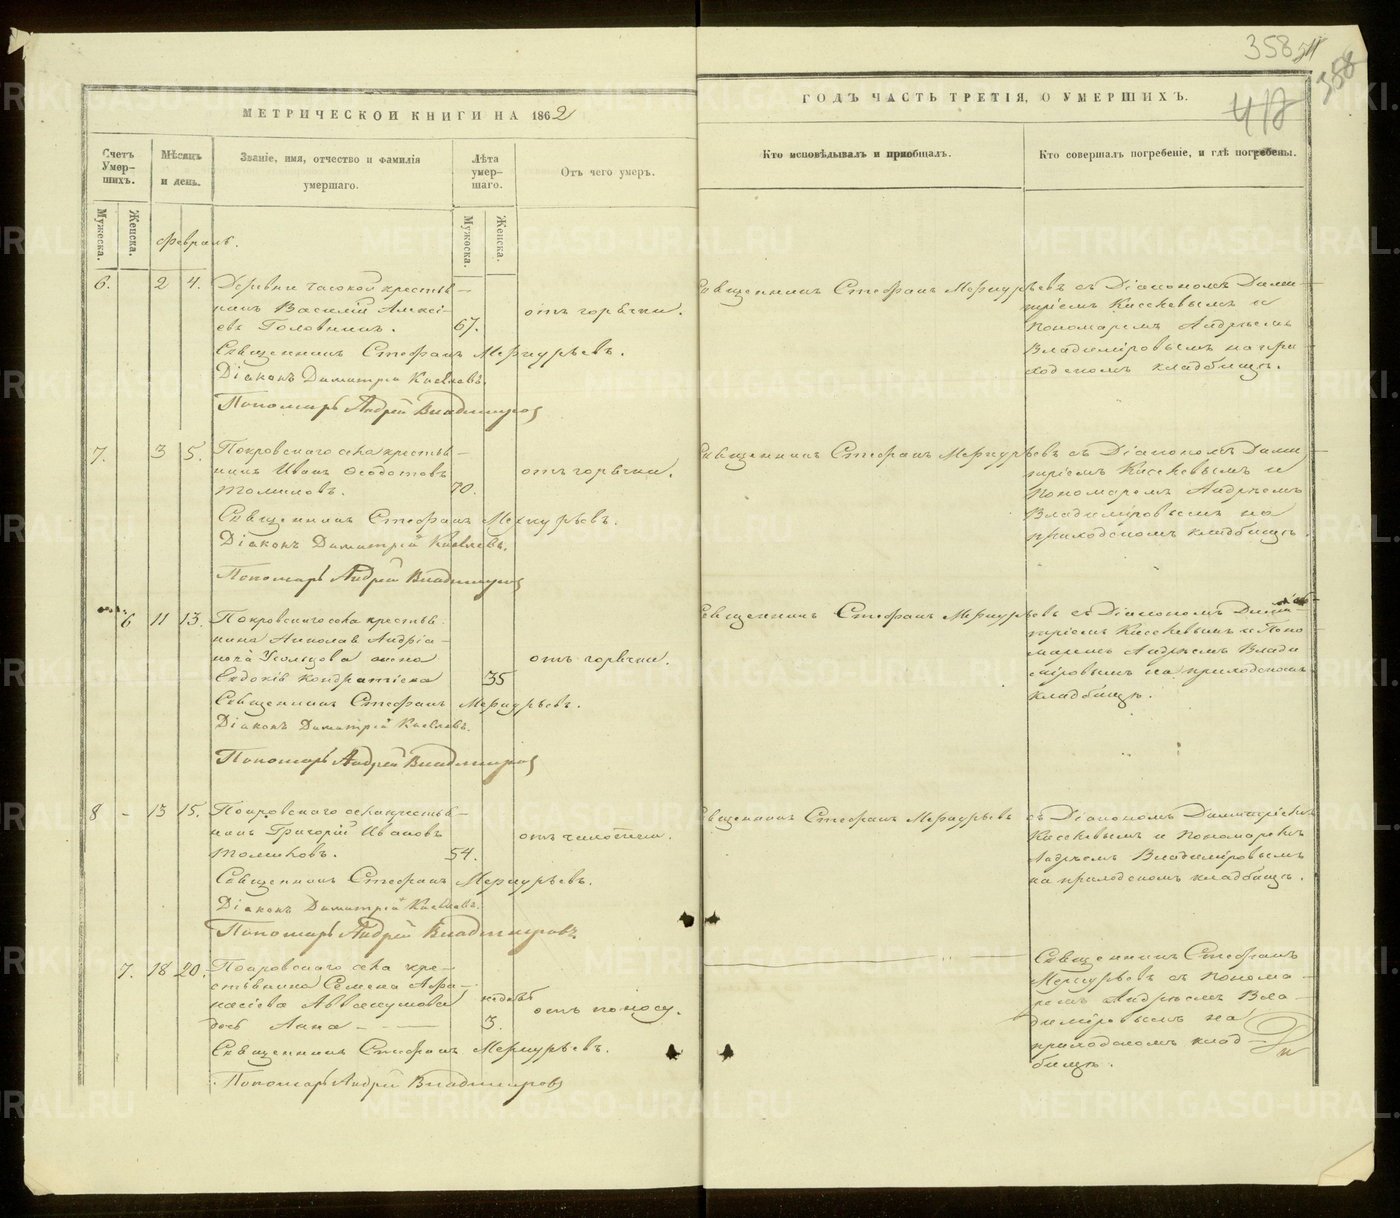 358
358
412
МЕТРИЧЕСКОЙ КНИГИ НА 1862
ГОДЪ ЧАСТЬ ТРЕТІЯ, О УМЕРШИХЪ.
Счетъ Умер-шихъ.
Мѣсяцъ и день.
Званіе, имя, отчество и фамилія умершаго.
Лѣта умер-шаго.
Отъ чего умеръ.
Кто исповѣдывалъ и пріобщалъ.
Кто совершалъ погребеніе, и гдѣ погребены.
Мужеска.
Женска.
Мужеска.
Женска.
февраль.
6. 2 4. Деревни часовой крестья-
нинъ Василій Алексі-
евъ Головинъ. 67.
отъ горячки.
Священникъ Стефанъ Меркурьевъ.
Діаконъ Димитрій
Пономарь Андрей Владимировъ
Священникъ Стефанъ Меркурьевъ
съ Діакономъ Дими-
тріемъ и
Пономаремъ Андреемъ
Владиміровымъ на при-
ходскомъ кладбищѣ.
7. 3 5. Покровскаго села крестья-
нинъ Иванъ Ѳедотовъ
Толмачовъ. 70.
отъ горячки.
Священникъ Стефанъ Меркурьевъ.
Діаконъ Димитрій
Пономарь Андрей Владимировъ
Священникъ Стефанъ Меркурьевъ
съ Діакономъ Дими-
тріемъ и
Пономаремъ Андреемъ
Владиміровымъ на
приходскомъ кладбищѣ.
6 11 13. Покровскаго села крестья-
нина Николая Андріа-
нова Усольцова жена
Евдокія Кондратьева 35
отъ горячки.
Священникъ Стефанъ Меркурьевъ.
Діаконъ Димитрій
Пономарь Андрей Владимировъ
Священникъ Стефанъ Меркурьевъ
съ Діакономъ Дими-
тріемъ и Поно-
маремъ Андреемъ Влади-
міровымъ на приходскомъ
кладбищѣ.
8 - 13 15. Покровскаго села крестья-
нинъ Григорій Ивановъ
Толмачовъ. 54.
отъ чахотки.
Священникъ Стефанъ Меркурьевъ.
Діаконъ Димитрій
Пономарь Андрей Владимировъ
Священникъ Стефанъ Меркурьевъ
съ Діакономъ Димитріемъ
и Пономаремъ
Андреемъ Владиміровымъ
на приходскомъ кладбищѣ.
7. 18 20. Покровскаго села кре-
стьянина Семена Афа-
насіева Аввакумова
дочь Анна
недѣль
3.
отъ поносу.
Священникъ Стефанъ Меркурьевъ.
Пономарь Андрей Владимировъ
Священникъ Стефанъ
Меркурьевъ съ Понома-
ремъ Андреемъ Вла-
диміровымъ на
приходскомъ клад-
бищѣ.
METRIKI.GASO-URAL.RU